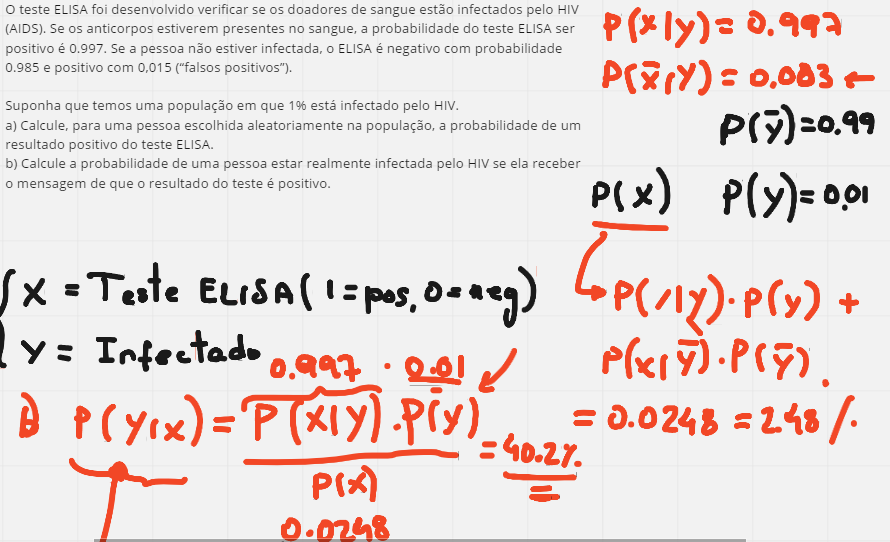 O teste ELISA foi desenvolvido verificar se os doadores de sangue estão infectados pelo HIV
(AIDS). Se os anticorpos estiverem presentes no sangue, a probabilidade do teste ELISA ser
positivo é 0.997. Se a pessoa não estiver infectada, o ELISA é negativo com probabilidade
0.985 e positivo com 0,015 (“falsos positivos”).
Suponha que temos uma população em que 1% está infectado pelo HIV.
a) Calcule, para uma pessoa escolhida aleatoriamente na população, a probabilidade de um
resultado positivo do teste ELISA.
b) Calcule a probabilidade de uma pessoa estar realmente infectada pelo HIV se ela receber
o mensagem de que o resultado do teste é positivo.
P(x|y) = 0.997
P(x̄|y) = 0.003 ←
P(ȳ) = 0.99
P(x) P(y) = 0.01
X = Teste ELISA (1=pos, 0=neg)
Y = Infectado
P(/|y)·P(y) +
P(x|ȳ)·P(ȳ).
= 0.0248 = 2.48%
0.997 · 0.01
B) P(Y|X) = P(X|Y).P(y) = 40.2%
P(X)
0.0248